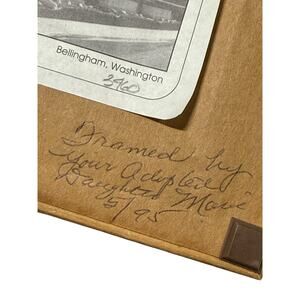 Bellingham, Washington
2460
Framed by
Your Adopted
Daughter Marie
5/95